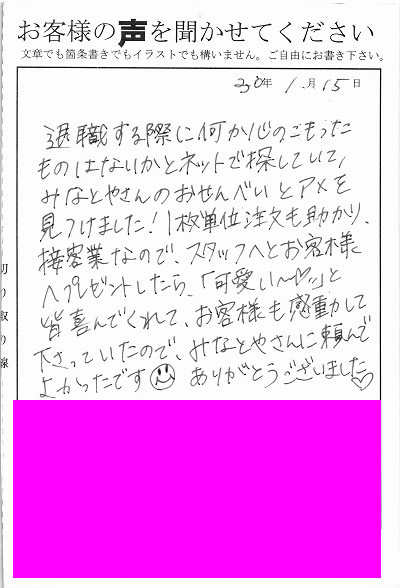 お客様の声を聞かせてください
文章でも箇条書きでもイラストでも構いません。ご自由にお書き下さい。
30年 1月15日
退職する際に何か心のこもった
ものはないかとネットで探していて、
みなとやさんのおせんべいとアメを
見つけました！1枚単位注文も助かり、
接客業なので、スタッフへとお客様
へプレゼントしたら、「可愛い〜♡」と
皆喜んでくれて、お客様も感動して
下さっていたので、みなとやさんに頼んで
よかったです☺ ありがとうございました♡
切り取り線